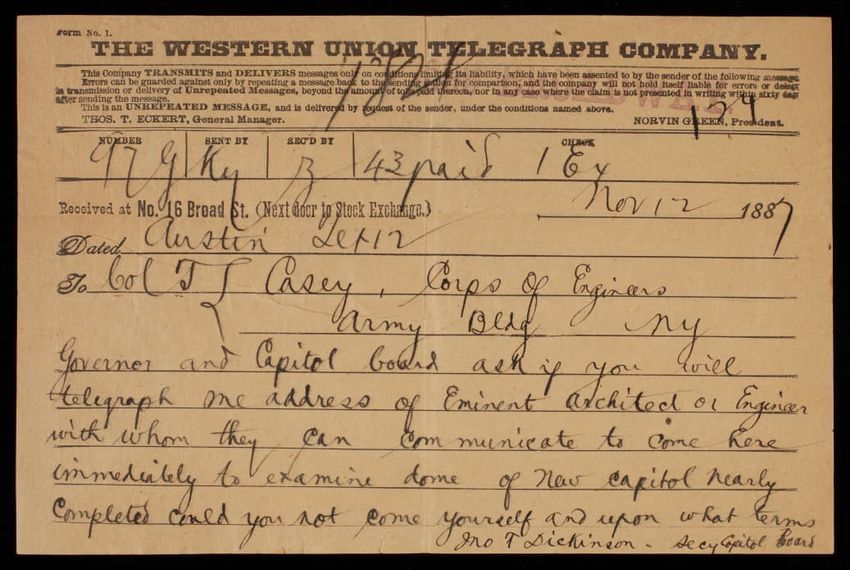 Form No. 1.
THE WESTERN UNION TELEGRAPH COMPANY.
This Company TRANSMITS and DELIVERS messages only on conditions limiting its liability, which have been assented to by the sender of the following message.
Errors can be guarded against only by repeating a message back to the sending station for comparison, and the company will not hold itself liable for errors or delays
in transmission or delivery of Unrepeated Messages, beyond the amount of tolls paid thereon, nor in any case where the claim is not presented in writing within sixty days
after sending the message.
This is an UNREPEATED MESSAGE, and is delivered by request of the sender, under the conditions named above.
THOS. T. ECKERT, General Manager. NORVIN GREEN, President.
1828
129
NUMBER SENT BY REC'D BY CHECK
97 G Ky 43 paid 1 Ex
Received at No. 16 Broad St. (Next door to Stock Exchange.) Nov 12 1887
Dated Austin Tex 12
To Col T L Casey, Corps of Engineers
Army Bldg NY
Governor and Capitol board ask if you will
telegraph me address of Eminent architect or Engineer
with whom they can communicate to come here
immediately to examine dome of New capitol nearly
Completed could you not come yourself and upon what terms
Jno T Dickinson - Secy Capitol board